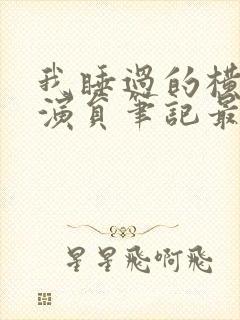 我睡過的橫
演員筆記最
星星飛啊飛